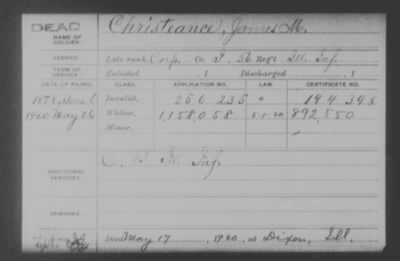 DEAD
NAME OF SOLDIER:
Christeance, James M.
SERVICE:
Late rank Corp. Co. I, 56 Reg't Ill. Inf.
TERM OF SERVICE:
Enlisted , 1 Discharged , 1
DATE OF FILING. CLASS. APPLICATION NO. LAW. CERTIFICATE NO.
Invalid, 256,235 194,398
1920 May 26 Widow, 1,158,058 5-1-20 892,550
Minor, —
ADDITIONAL SERVICES:
Ill. Inf.
REMARKS:
Died May 17, 1920, at Dixon, Ill.